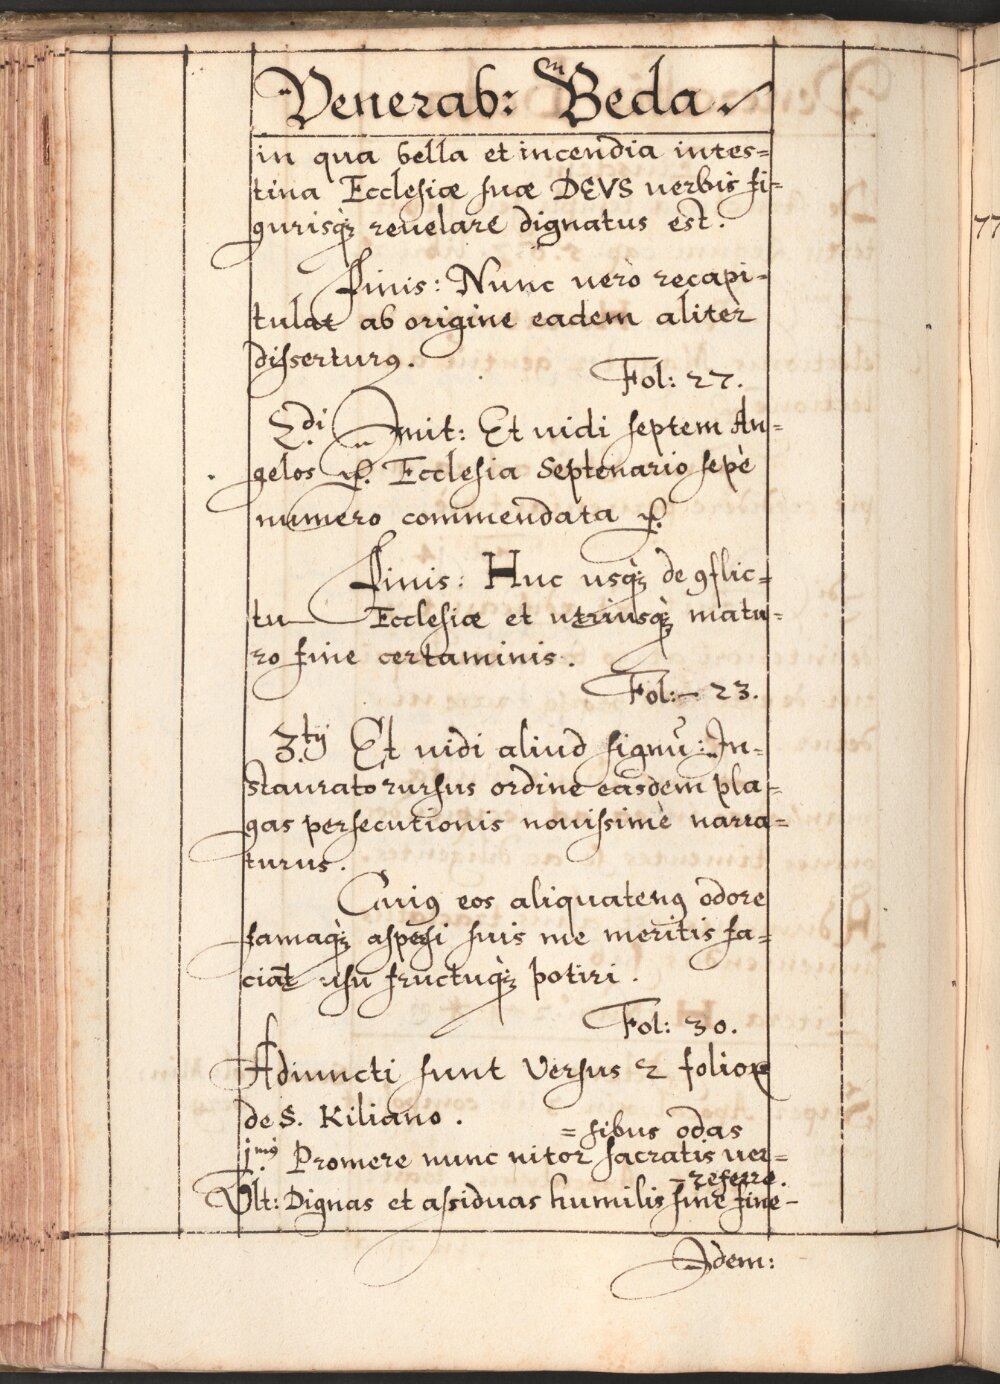 Venerab: Beda.
in qua bella et incendia intes=
tina Ecclesiæ suæ DEVS verbis fi=
gurisq₃ reuelare dignatus est.
Finis: Nunc verò recapi=
tulat ab origine eadem aliter
disserturꝰ.
Fol: 27.
2.di Init: Et vidi septem An=
gelos ꝛc. Ecclesia Septenario sepè
numero commendata ꝛc.
Finis: Huc usq₃ de ꝯflic=
tu Ecclesiæ et utriusq₃ matu=
ro fine certaminis.
Fol:- 23.
3.tij Et vidi aliud signū: In=
staurato rursus ordine easdem pla=
gas persecutionis nouissimè narra=
turus.
Cuiꝰ eos aliquatenꝰ odore
famaq₃ aspersi suis me meritis fa=
ciāt usu fructuq₃ potiri.
Fol: 30.
Adiuncti sunt Versus 2 folioꝝ
de S. Kiliano.
=sibus odas
j.mꝰ Promere nunc nitor sacratis ver=
referre.
Vlt: Dignas et assiduas humilis sine fine-
Idem:
77